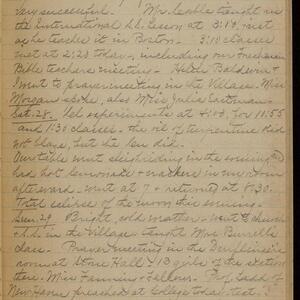 very successful. Mr. Cable taught in
the International S.S. Lesson at 3:10, just
as he teaches it in Boston. 3:10 classes
met at 2:20 today, including our Freshman
Bible teachers meeting. Helen Baldwin &
I went to prayer meeting in the Village. Miss
Morgan spoke, also Miss Julia Eastman.
Sat. 28. experiments at for 10:55
and 1:30 classes. the oil of turpentine did
not blaze, but the did.
Our table went sleighriding in the evening and
had hot lemonade & crackers in my room
afterward. went at 7 & returned at 8:30.
Total eclipse of the moon this evening.
Sun. 29. Bright, cold weather. went to church
& S.S. in the Village. taught Miss Burrell's
class. Prayer meeting in the
room at Stone Hall. 13 girls of the section
there. Miss Fanning's fellow. Prof. Ladd of
New Haven preached at College that